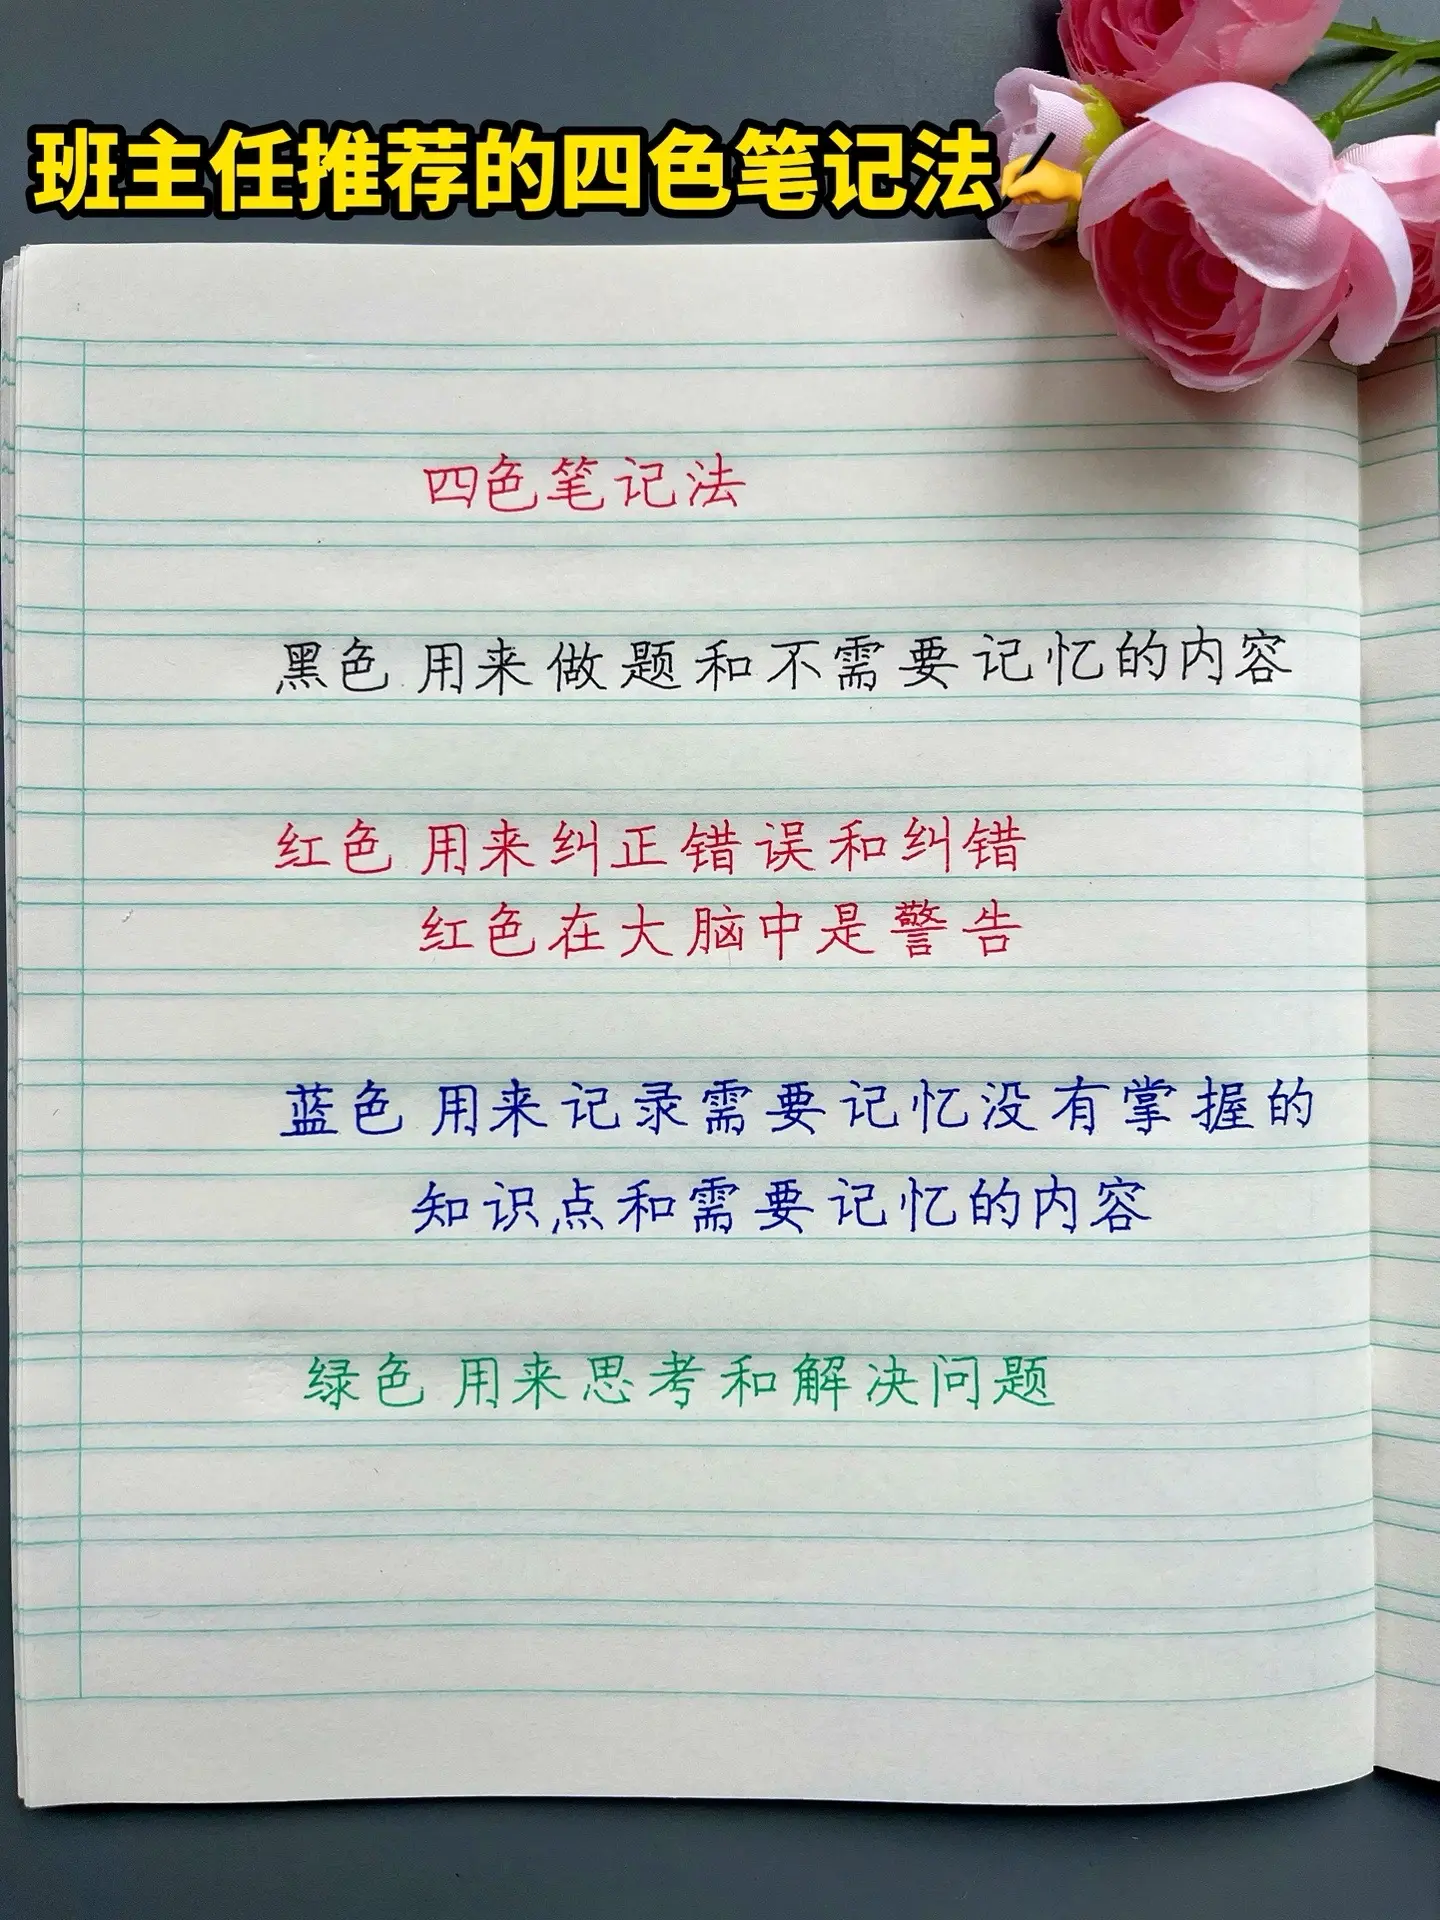 班主任推荐的四色笔记法✍
四色笔记法
黑色 用来做题和不需要记忆的内容
红色 用来纠正错误和纠错
红色在大脑中是警告
蓝色 用来记录需要记忆没有掌握的
知识点和需要记忆的内容
绿色 用来思考和解决问题